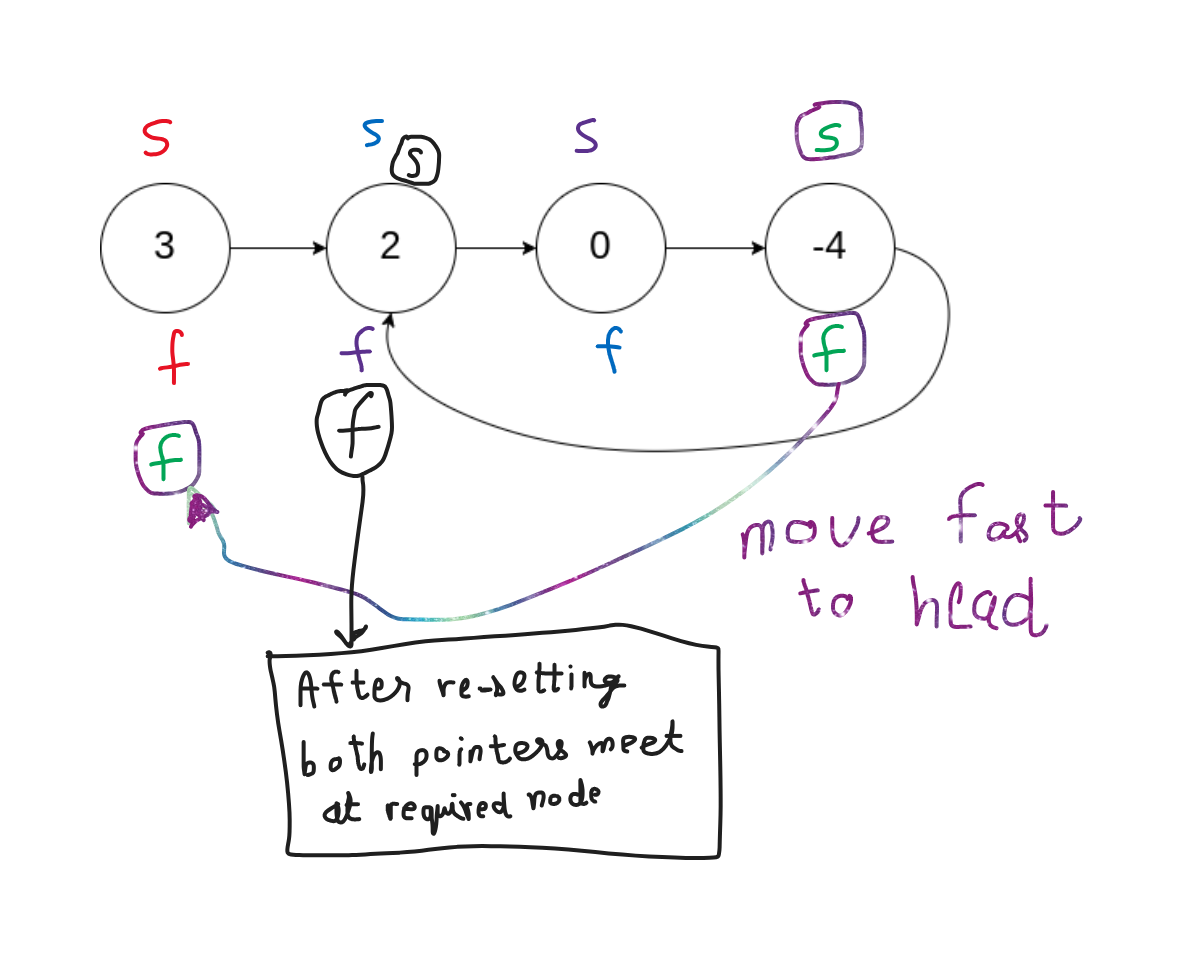 s s s s
s
3 2 0 -4
f f f f
f f
move fast
to head
After re-setting
both pointers meet
at required node